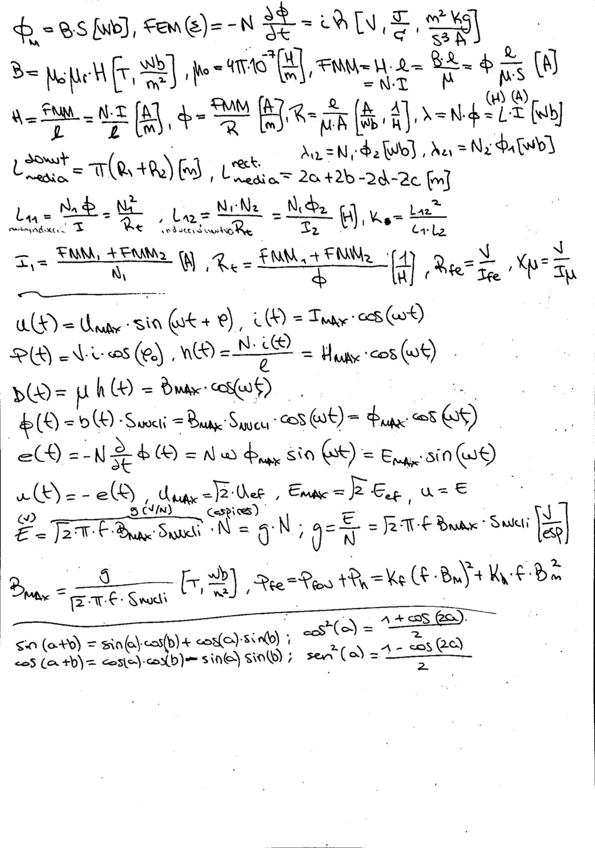 ϕ_M = B·S [Wb], FEM (ε) = -N ∂ϕ/∂t = i R [V, J/C, m² Kg/s³ A]
B = μ₀·μr·H [T, Wb/m²], μ₀ = 4π·10⁻⁷ [H/m], FMM = H·l = B·l/μ = ϕ l/μ·S [A]
= N·I
H = FMM/l = N·I/l [A/m], ϕ = FMM/R [A/m], R = l/μ·A [A/Wb, 1/H], λ = N·ϕ = L·I [Wb]
(H) (A)
λ12 = N₁·ϕ₂ [Wb], λ21 = N₂·ϕ₁ [Wb]
L donut media = π(R₁+R₂) [m], L rect. media = 2a+2b-2d-2c [m]
L11 = N₁ϕ/I = N₁²/Rt, L12 = N₁·N₂/Rt = N₁ϕ₂/I₂ [H], K = L12²/L1·L2
I₁ = FMM₁ + FMM₂/N₁ [A], Rt = FMM₁ + FMM₂/ϕ [1/H], Rfe = V/Ife, Xμ = V/Iμ
u(t) = UMAX·sin(ωt + φ), i(t) = IMAX·cos(ωt)
P(t) = V·i·cos(φ₀), h(t) = N·i(t)/l = HMAX·cos(ωt)
b(t) = μ h(t) = BMAX·cos(ωt)
ϕ(t) = b(t)·Snucli = BMAX·Snucli·cos(ωt) = ϕMAX·cos(ωt)
e(t) = -N ∂/∂t ϕ(t) = N ω ϕMAX sin(ωt) = EMAX·sin(ωt)
u(t) = -e(t), UMAX = √2·Uef, EMAX = √2·Eef, u = E
(V) g (V/N) (espires)
E = √2·π·f·BMAX·Snucli·N = g·N; g = E/N = √2·π·f·BMAX·Snucli [V/esp]
BMAX = g/√2·π·f·Snucli [T, Wb/m²], Pfe = Pfou + Ph = Kf (f·Bm)² + Kh·f·Bm²
sin (a+b) = sin(a)·cos(b) + cos(a)·sin(b); cos²(a) = 1 + cos (2a)/2
cos (a+b) = cos(a)·cos(b) - sin(a) sin(b); sen²(a) = 1 - cos (2a)/2